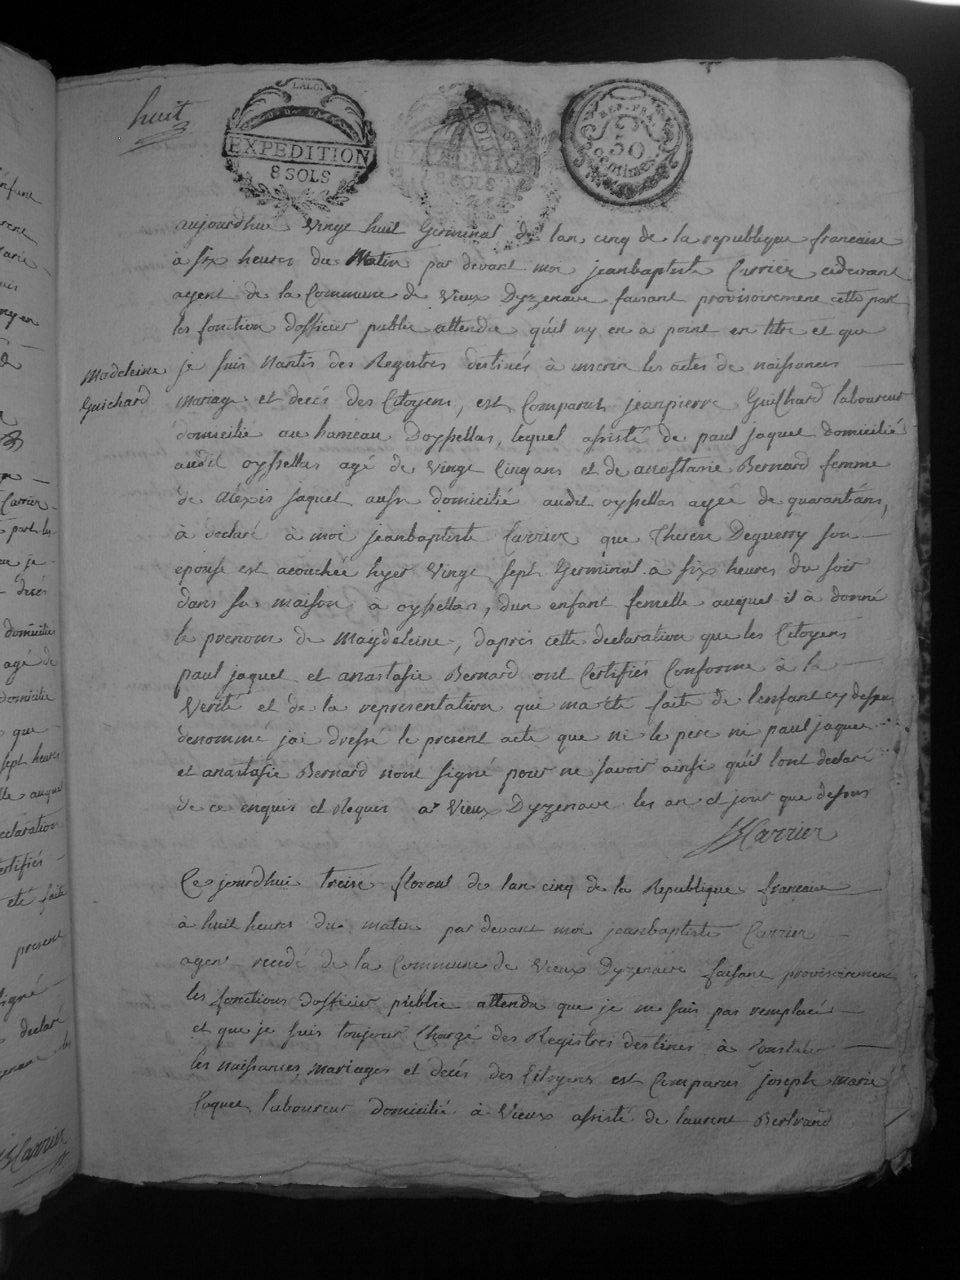 huit
LALO.
EXPEDITION
8 SOLS
EXPEDITION
8 SOLS
REP. FRA.
50
centimes
aujourdhui vingt huit Germinal de lan cinq de la republique francaise
à six heures du Matin par devant moi jeanbaptiste Carrier cidevant
agent de la Commune de Vieux Dyzenave faisant provisoirement cette part
les fonction dofficier public attendu quil ny en à point en titre et que
Madeleine
Guichard
je suis Nantis des Registres destinés à inscrire les actes de naissances
mariage et decés des Citoyens, est Comparut jeanpierre Guichard laboureur
domicilié au hameau Doyssellas, lequel assisté de paul jaquet domicilié
audit oyssellas agé de vingt Cinq ans et de anastasie Bernard femme
de alexis jaquet aussi domicilié audit oyssellas agée de quarantans,
à declaré à moi jeanbaptiste Carrier que Therese Deguerry son
epouse est acouchée hyer vingt sept Germinal à six heures du soir
dans sa maison à oyssellas, dun enfant femelle auquel il à donné
le prenom de Maydeleine, dapres cette declaration que les Citoyens
paul jaquet et anastasie Bernard ont Certifiés Conforme à la
Verité et de la representation qui ma été faite de lenfant cy dessus
denommé jai dressé le present acte que ni le pere ni paul jaquet
et anastasie Bernard nont signé pour ne savoir ainsi quil lont declaré
de ce enquis et Requis a Vieux Dyzenave les an et jour que dessus
JBCarrier
Ce jourdhui treise floreal de lan cinq de la Republique francaise
à huit heures du matin par devant moi jeanbaptiste Carrier
agent de la Commune de Vieux Dyzenave faisant provisoirement
les fonctions dofficier public attendu que je ne suis pas remplacé
et que je suis toujour Chargé des Registres destines à Constater
les naissances mariages et decés des Citoyens est Comparus joseph marie
jaquet laboureur domicilié à Vieux assisté de laurent Bertrand